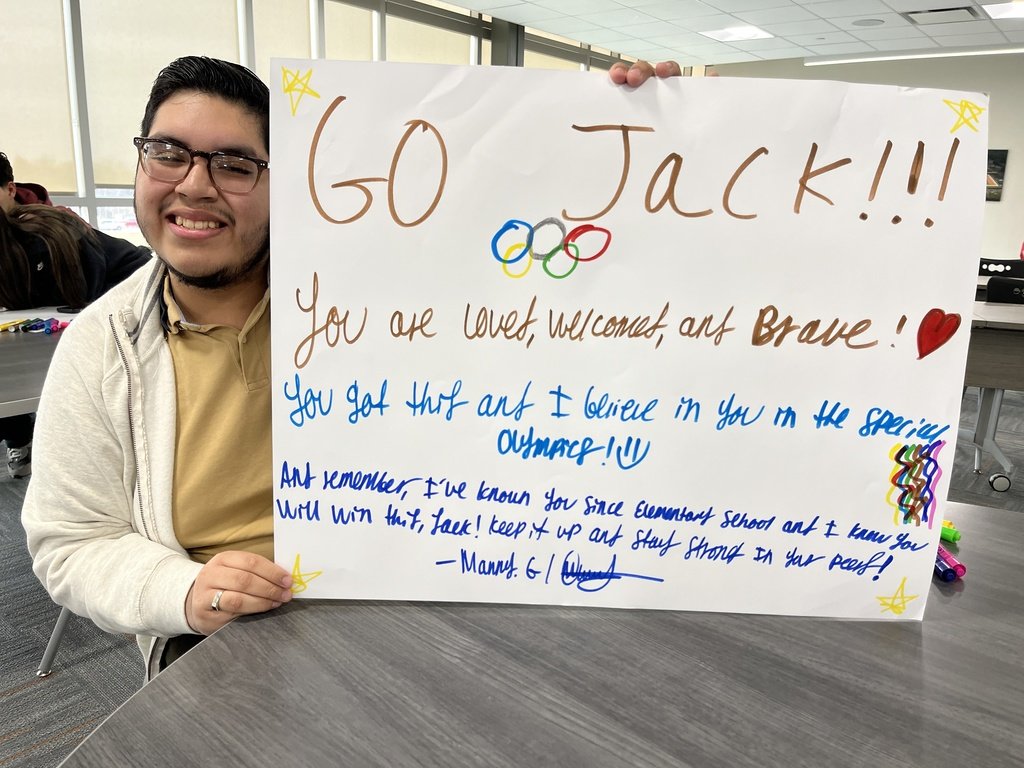 GO Jack!!!
You are loved, welcomed, and Brave!
You got this and I believe in you in the special
Olympics!
And remember, I've known you since Elementary School and I know you
will win this, Jack! Keep it up and stay strong in your
– Manny. G /